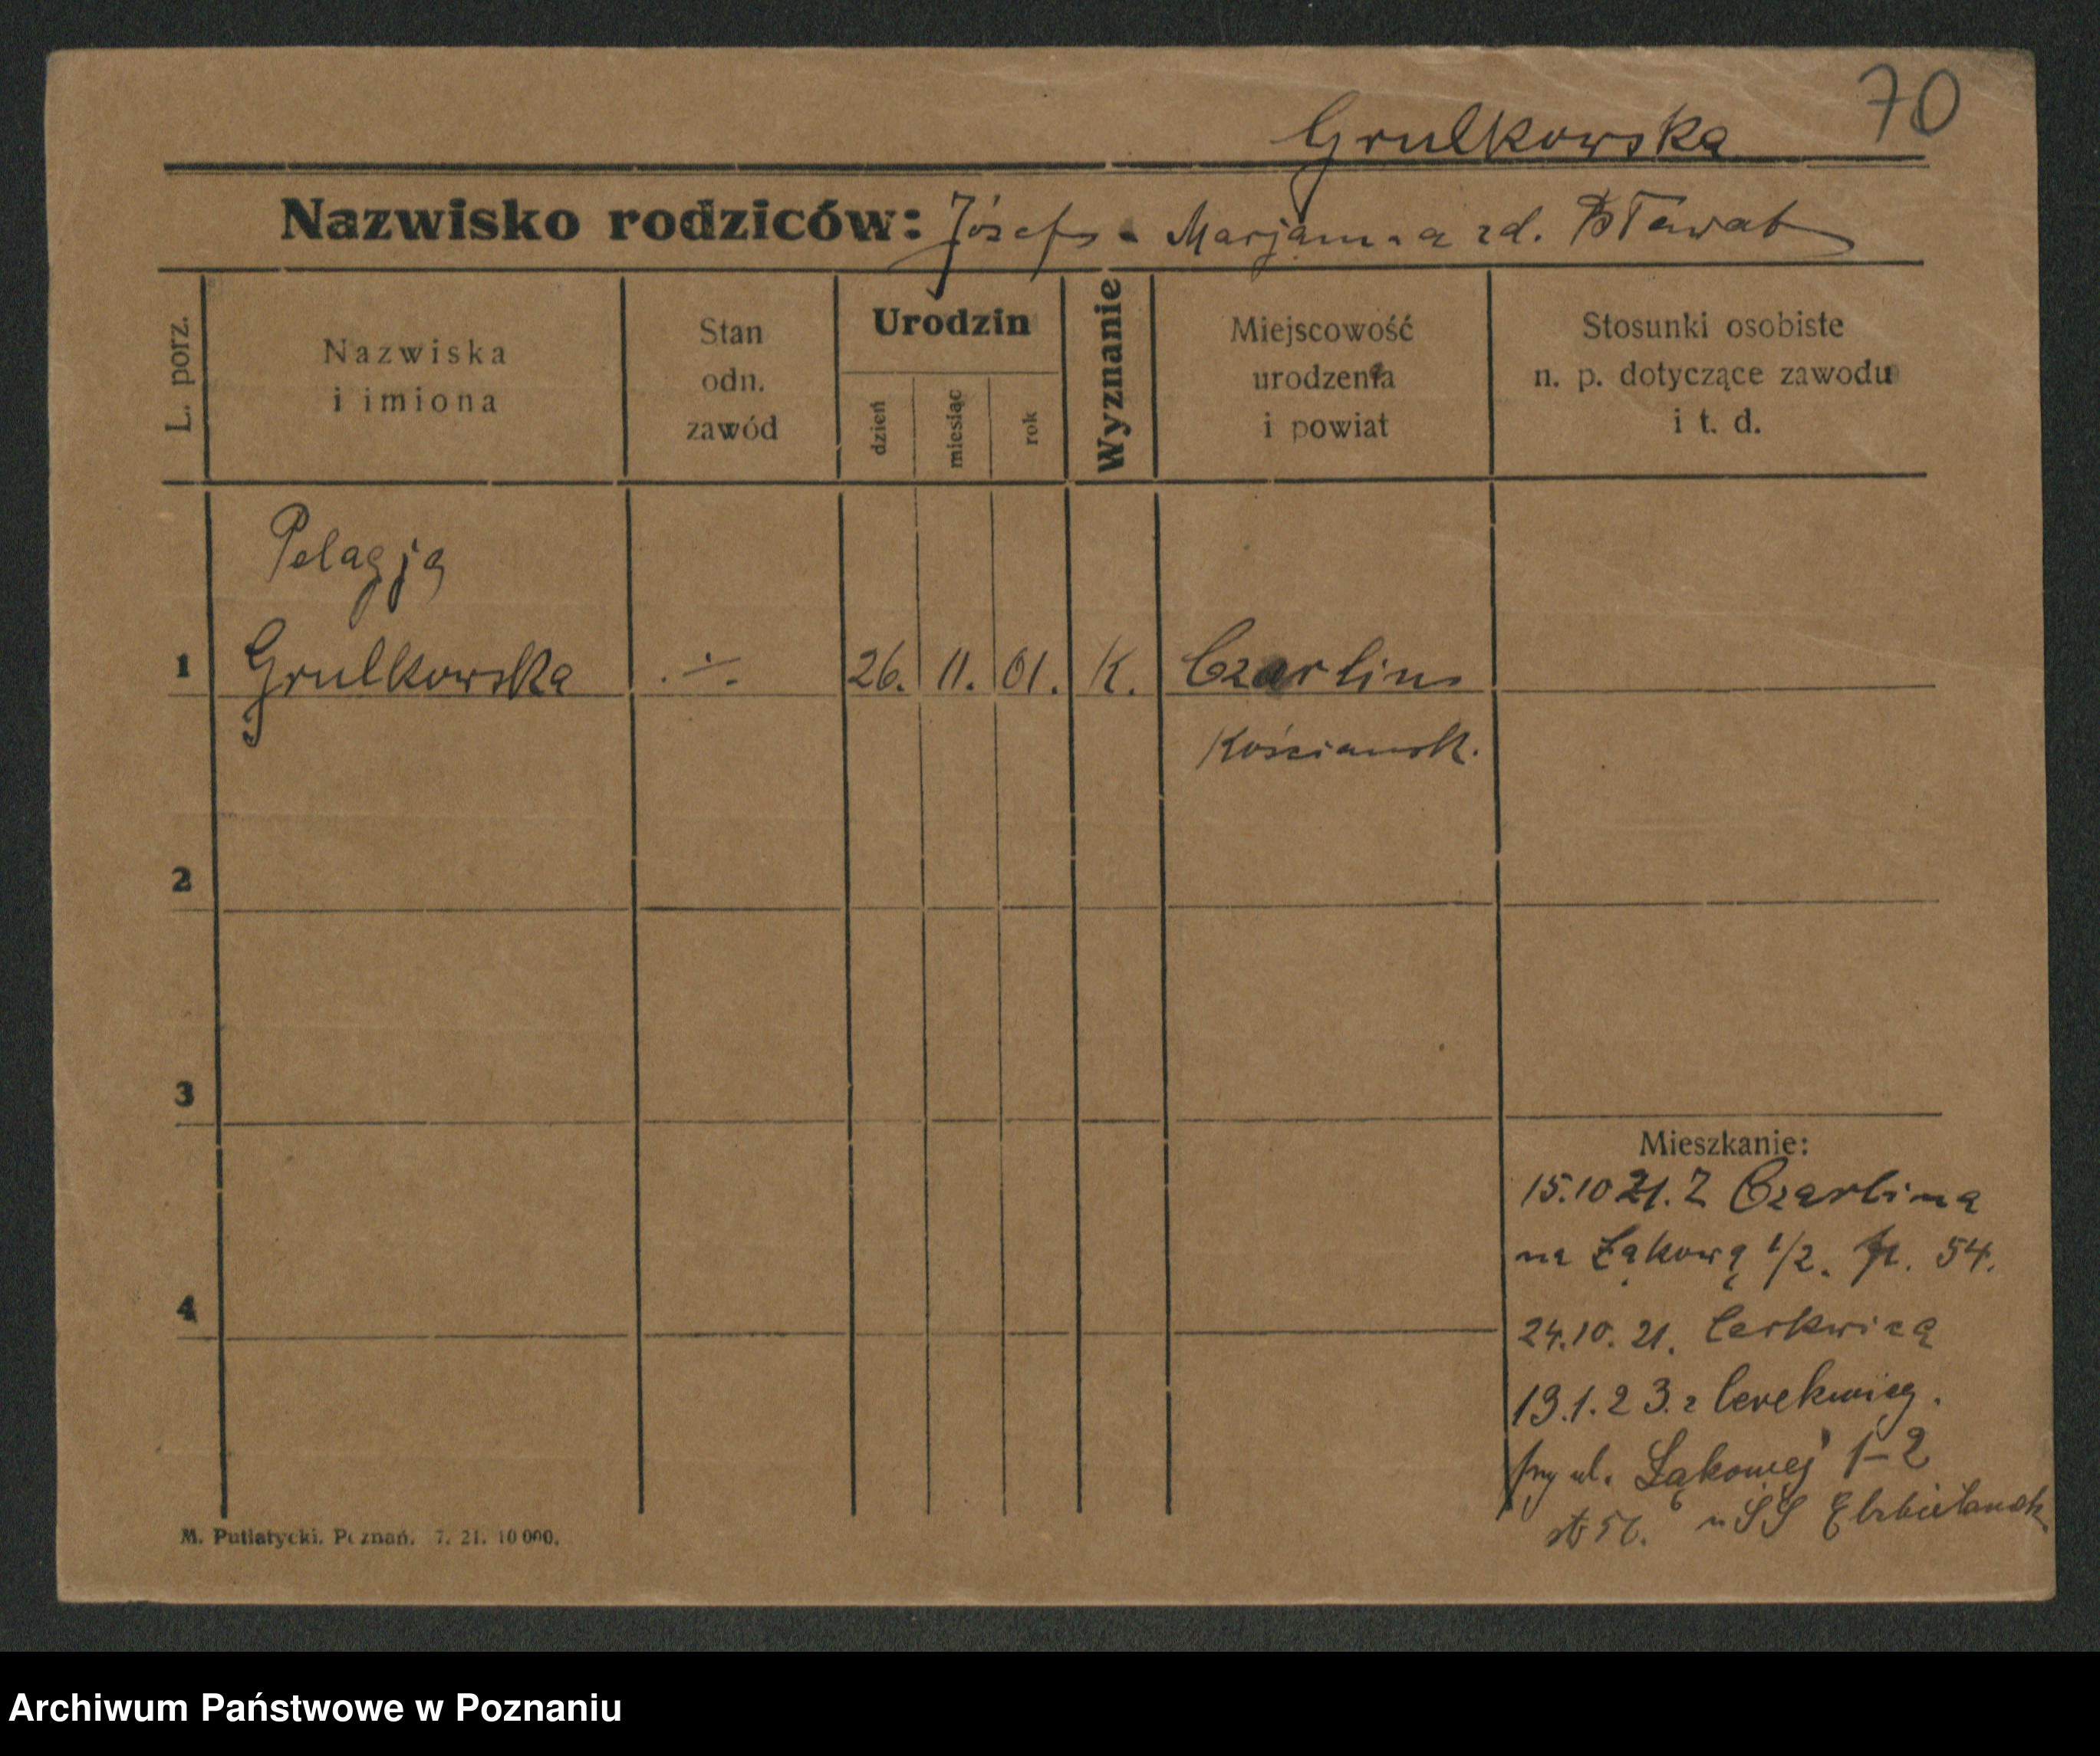 70
Grulkowska
Nazwisko rodziców: Józef - Marjanna zd. Bławat
L. porz.
Nazwiska i imiona
Stan odn. zawód
Urodzin
dzień
miesiąc
rok
Wyznanie
Miejscowość urodzenia i powiat
Stosunki osobiste n. p. dotyczące zawodu i t. d.
Pelagja
1 Grulkowska .÷. 26. 11. 01. K. Czarlin
Kościansk.
2
3
4
Mieszkanie:
15.10 21. Z Czarlina
na Łąkową 1/2. p. 54.
24.10. 21. Cerkwicą
19.1.23. z Cerekwicy.
przy ul. Łąkowej 1-2
u SS Elżbietanek
M. Putiatycki. Poznań. 7. 21. 10 000.
Archiwum Państwowe w Poznaniu